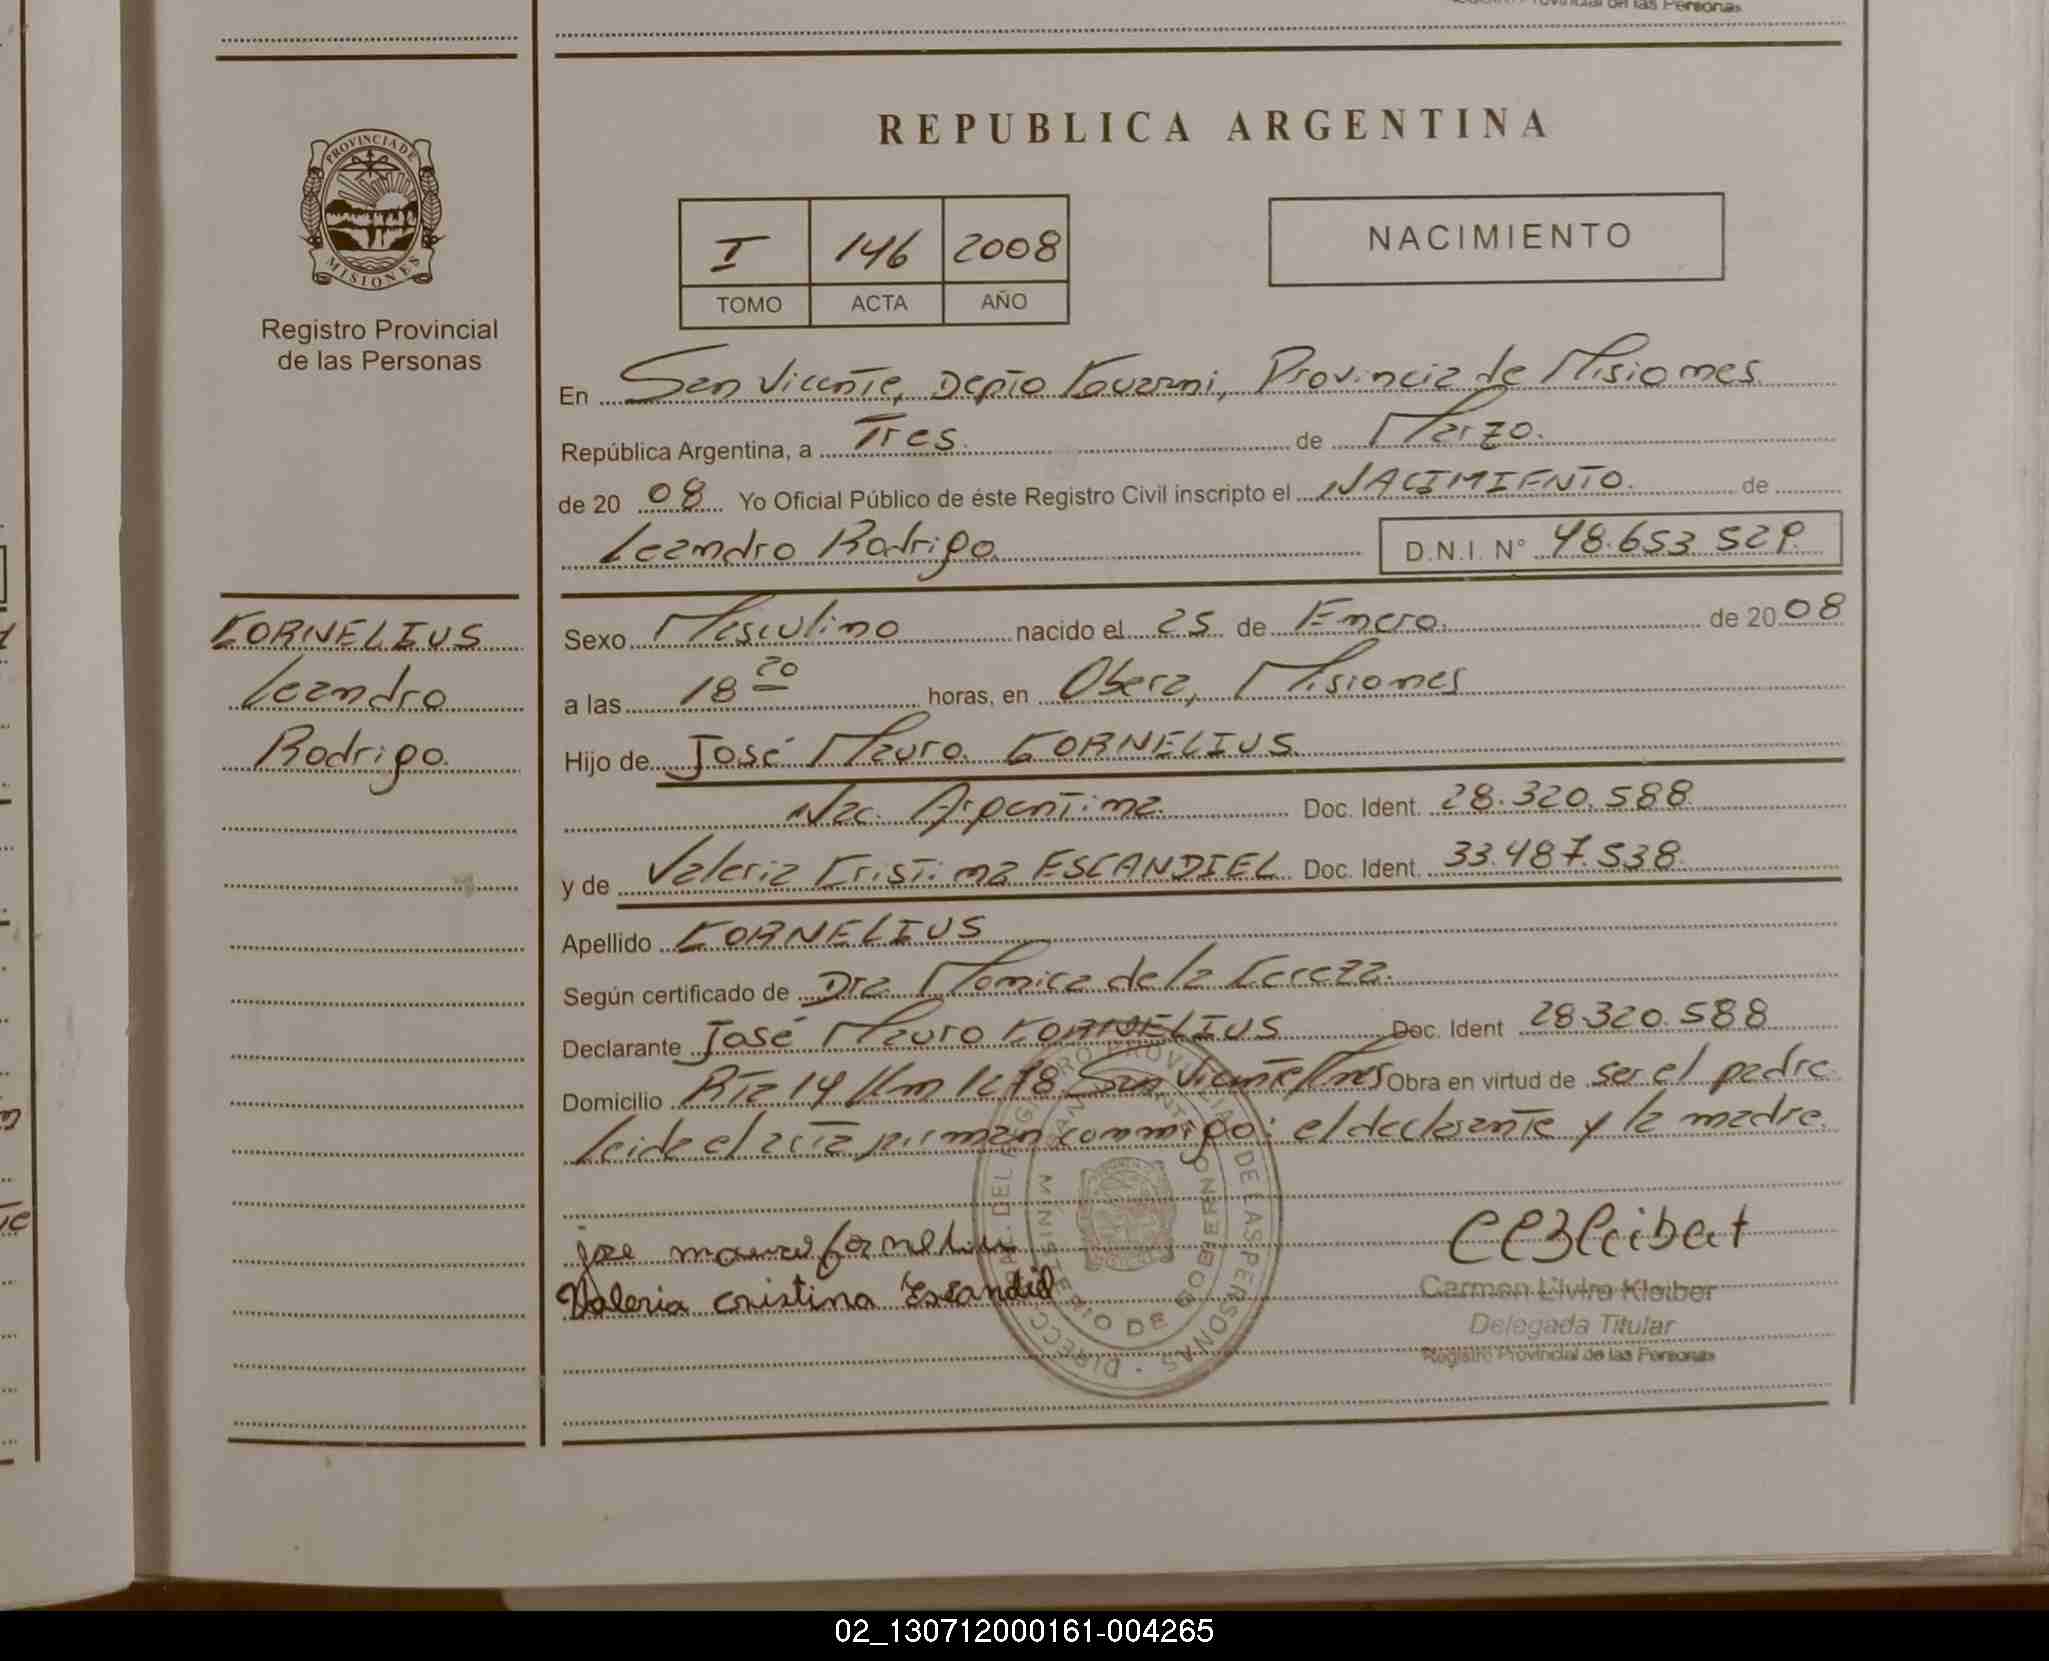 Registro Provincial de las Personas
REPUBLICA ARGENTINA
PROVINCIA DE
MISIONES
Registro Provincial
de las Personas
I 146 2008
TOMO ACTA AÑO
NACIMIENTO
En San Vicente, Depto Guarani, Provincia de Misiones
República Argentina, a Tres de Marzo.
de 20 08 Yo Oficial Público de éste Registro Civil inscripto el NACIMIENTO. de
Leandro Rodrigo D.N.I. N° 48.653.529.
KORNELIUS
Leandro
Rodrigo.
Sexo Masculino nacido el 25 de Enero. de 20 08
a las 18 20 horas, en Obera, Misiones
Hijo de José Mauro KORNELIUS
Nac. Argentina. Doc. Ident. 28.320.588
y de Valeria Cristina ESCANDIEL Doc. Ident. 33.487.538
Apellido KORNELIUS
Según certificado de Dra Monica de la
Declarante José Mauro KORNELIUS Doc. Ident 28.320.588
Domicilio Rta 14 Km San Vicente Mnes Obra en virtud de ser el padre
leida el acta firman conmigo: el declarante y la madre.
DIRECC. GRAL. DEL REGISTRO PROVINCIAL DE LAS PERSONAS
MINISTERIO DE GOBIERNO
SAN VICENTE
jose mauro kornelius
Valeria cristina Escandiel
Carmen Elvira Kleiber
Delegada Titular
Registro Provincial de las Personas
02_130712000161-004265